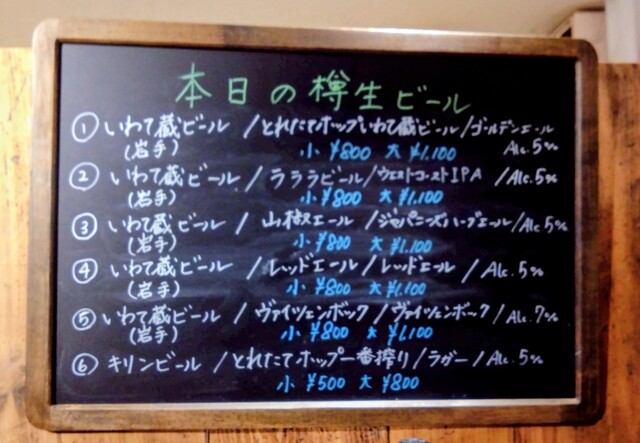 本日の樽生ビール
① いわて蔵ビール / とれたてホップいわて蔵ビール / ゴールデンエール
(岩手) 小 ¥800 大 ¥1,100 Alc.5%
② いわて蔵ビール / ラララビール / ウエストコーストIPA / Alc.5%
(岩手) 小 ¥800 大 ¥1,100
③ いわて蔵ビール / 山椒エール / ジャパニーズハーブエール / Alc.5%
(岩手) 小 ¥800 大 ¥1,100
④ いわて蔵ビール / レッドエール / レッドエール / Alc.5%
(岩手) 小 ¥800 大 ¥1,100
⑤ いわて蔵ビール / ヴァイツェンボック / ヴァイツェンボック / Alc.7%
(岩手) 小 ¥800 大 ¥1,100
⑥ キリンビール / とれたてホップ一番搾り / ラガー / Alc.5%
小 ¥500 大 ¥800